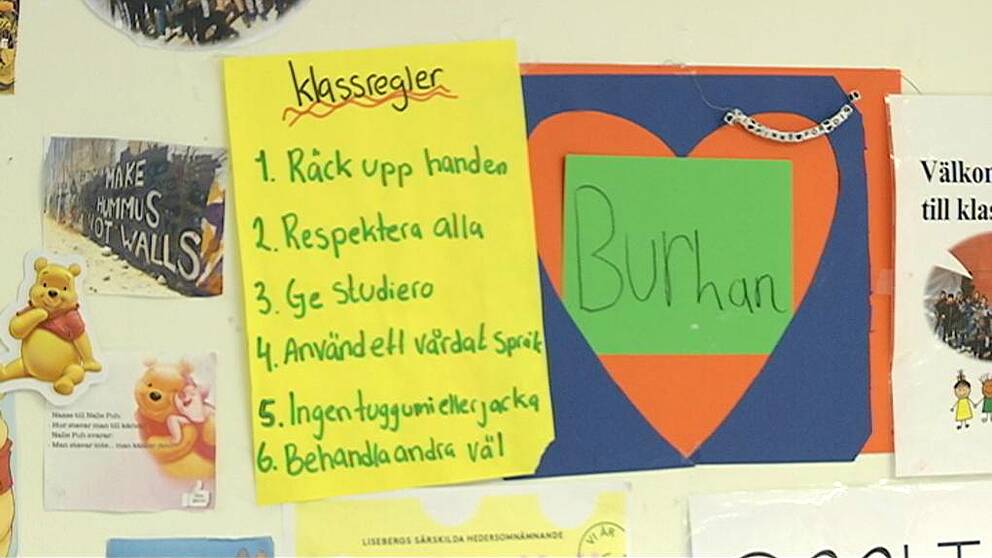 klassregler
1. Räck upp handen
2. Respektera alla
3. Ge studiero
4. Använd ett vårdat språk
5. Ingen tuggumi eller jacka
6. Behandla andra väl
Burhan
MAKE
HUMMUS
NOT WALLS
Nasse till Nalle Puh:
Hur stavar man till kärlek
Nalle Puh svarar:
- Man stavar inte... man känner
Välkom
till klas
LISEBERGS SÄRSKILDA HEDERSOMNÄMNANDE
VI ÄR